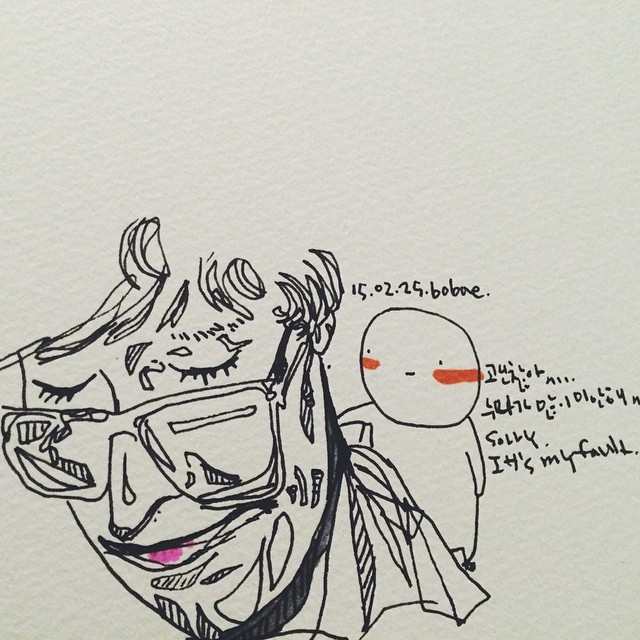 15.02.25.bobae.
괜찮아...
누나가 많이 미안해
Sorry.
It's my fault.